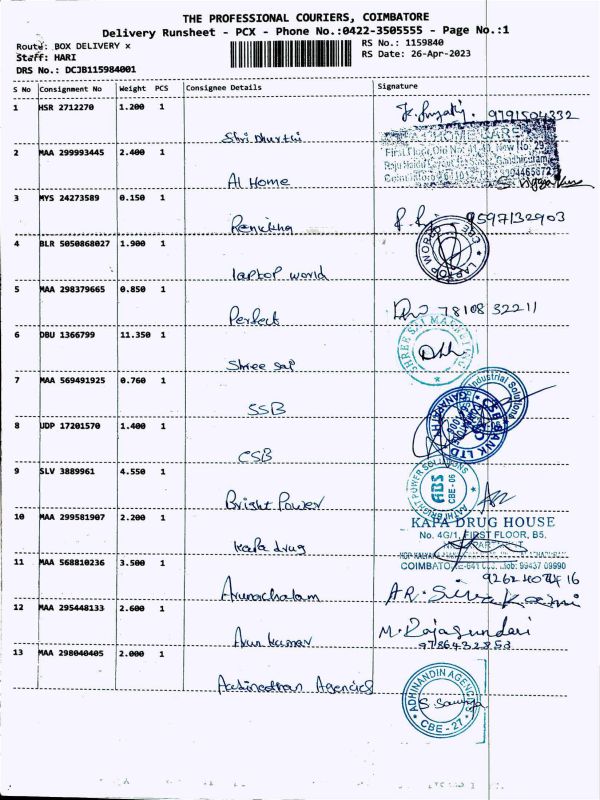 THE PROFESSIONAL COURIERS, COIMBATORE
Delivery Runsheet - PCX - Phone No.:0422-3505555 - Page No.:1
Route: BOX DELIVERY x
Staff: HARI
DRS No.: DCJB115984001
RS No.: 1159840
RS Date: 26-Apr-2023
S No Consignment No Weight PCS Consignee Details Signature
1 HSR 2712270 1.200 1
9791504332
2 MAA 299993445 2.400 1
HOME CARE
First Floor, Old No: 41, 40, New No: 29
Al Home
3 MYS 24273589 0.150 1
9597132903
4 BLR 5050868027 1.900 1
LAPTOP WORLD CBE
laptop world
5 MAA 298379665 0.850 1
78108 32211
Perfect
6 DBU 1366799 11.350 1
Shree sai
7 MAA 569491925 0.760 1
Industrial Solutions
SSB
8 UDP 17201570 1.400 1
CSB BANK LTD
CSB
9 SLV 3889961 4.550 1
AATHI BRIGHT POWER SOLUTIONS
ABS
CBE-06
Bright Power
10 MAA 299581907 2.200 1
KAPA DRUG HOUSE
No. 4G/1, FIRST FLOOR, B5,
kapa drug
11 MAA 568810236 3.500 1
Mob: 99437 09990
Arunachalam
AR. Sivakami
12 MAA 295448133 2.600 1
M. Rajasundari
9786432853
Arun kumar
13 MAA 298040405 2.000 1
ADHINANDIN AGENCIES
CBE - 27
Agencies